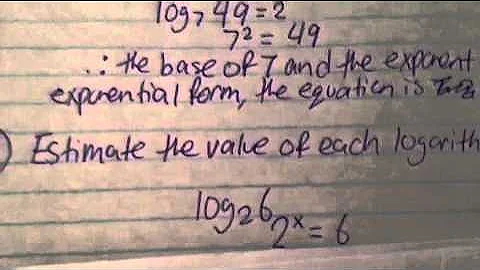 log₇ 49 = 2
7² = 49
∴ the base of 7 and the exponent
exponential form, the equation is
Estimate the value of each logarith
log₂6
2ˣ = 6